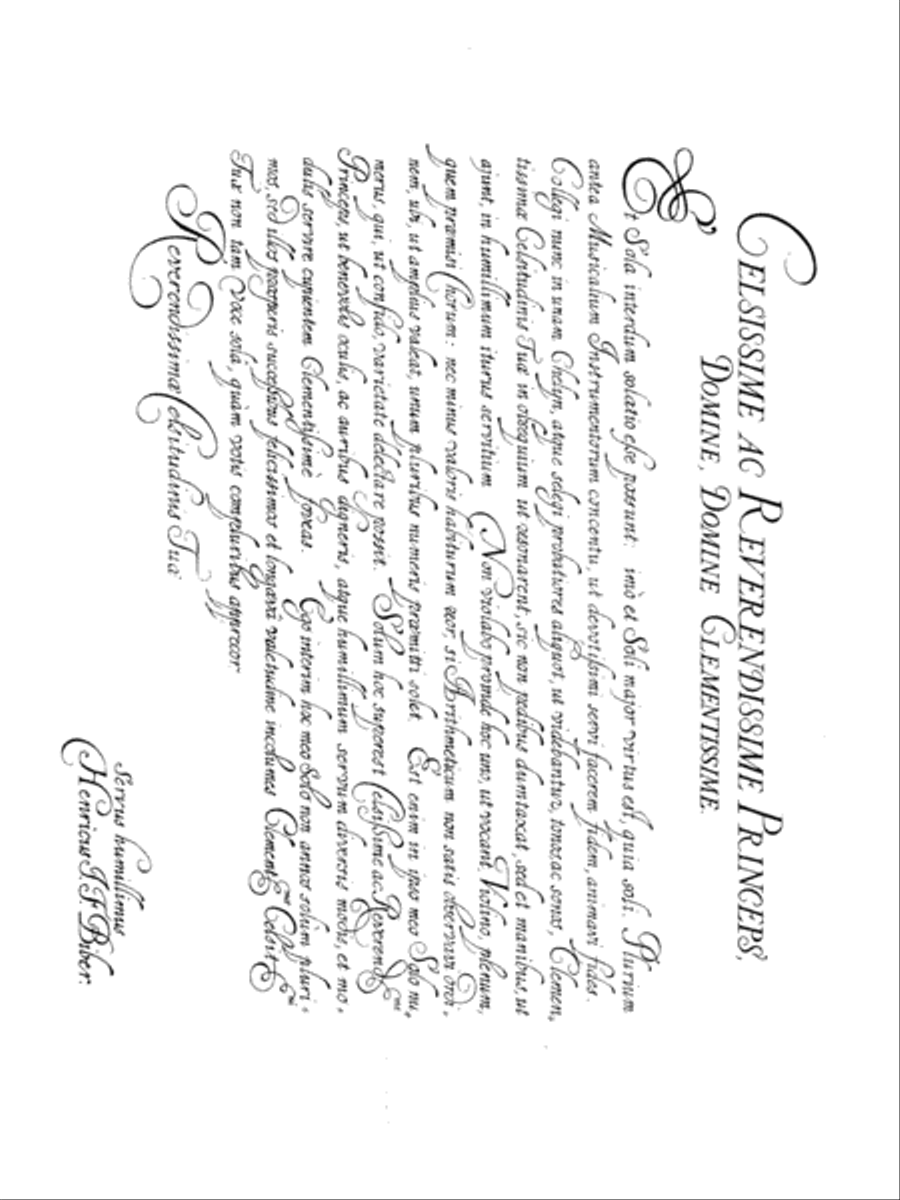 CELSISSIME AC REVERENDISSIME PRINCEPS,
DOMINE, DOMINE CLEMENTISSIME.
Et Sola interdum solatio esse possunt: imò et Soli major virtus est, quia soli. Plurium
antea Musicalium Instrumentorum concentu, ut devotissimi servi facerem fidem, animavi fides.
Collegi nunc in unam Chelyn, atque selegi probatiores aliquot, ut videbantur, tonos ac sonos, Clemen,
tissimæ Celsitudinis Tuæ in obsequium ut resonarent, sic non pedibus dumtaxat, sed et manibus, ut
ajunt, in humillimum iturus servitium. Non violabo proinde hoc uno, ut vocant Violino, plenum,
quem præmisi Chorum: nec minus valoris habiturum reor, si Arithmeticum non satis observavi ordi,
nem, ubi, ut amplius valeat, unum pluribus numeris præmitti solet. Est enim in ipso meo Solo nu,
merus, qui, ut confido, varietate delectare possit. Solum hoc superest Celsissime ac Reverendme
Princeps, ut benevolis oculis, ac auribus digneris, atque humillimum servum diversis modis, et mo,
dulis servire cupientem Clementissimè foveas. Ego interim hoc meo Solo non annos solùm pluri,
mos, sed illos prosperis successibus felicissimos et longævâ valetudine incolumes Clementme Celsitni
Tuæ non tam voce solâ, quàm votis compluribus apprecor.
Reverendissimæ Celsitudinis Tuæ
Servus humillimus
Henricus I. F. Biber.